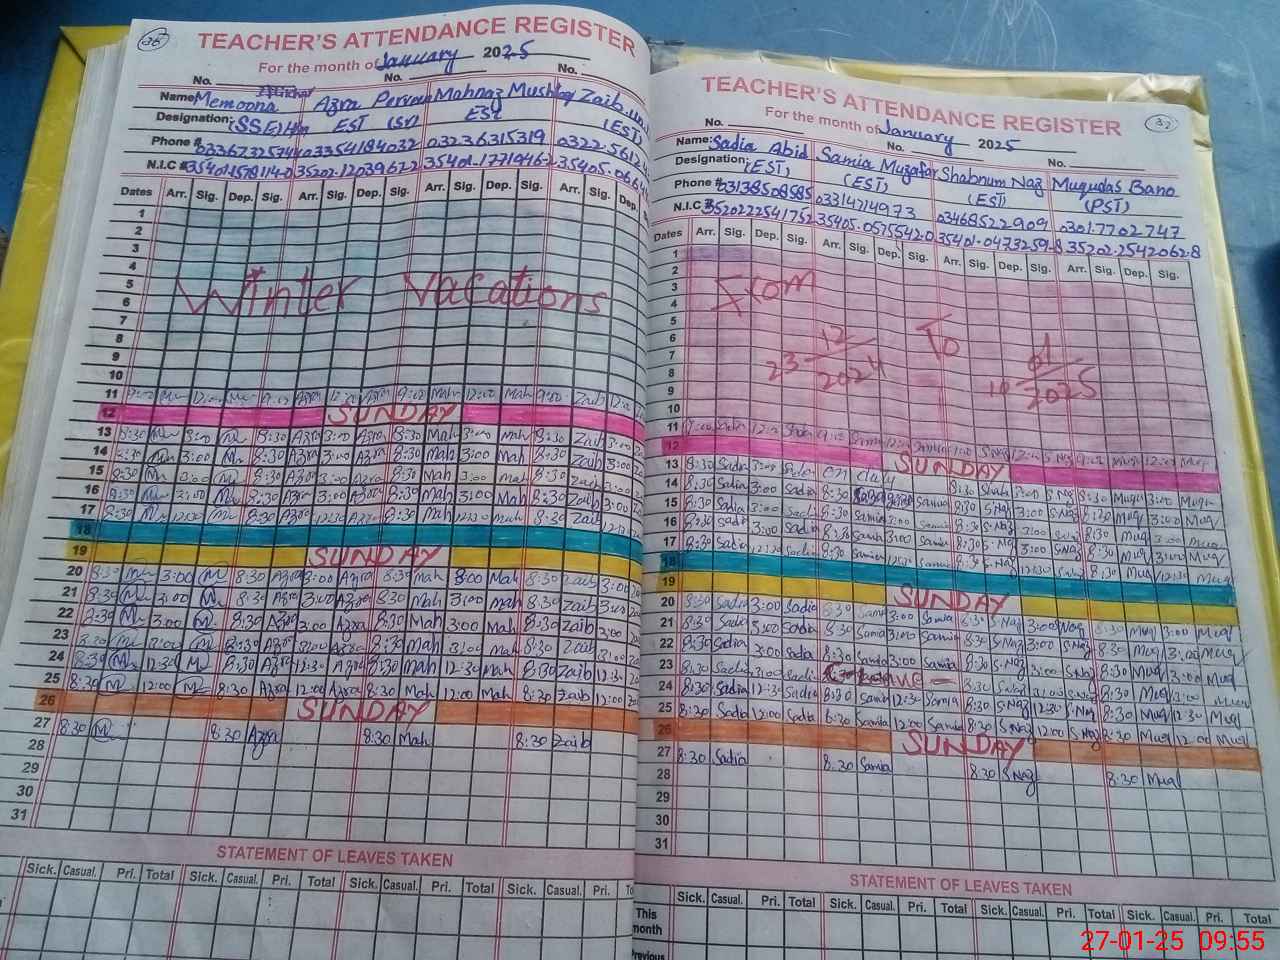 36
TEACHER'S ATTENDANCE REGISTER
For the month of January 2025
No. No. No.
Name: Memoona Azra Perveen Mahnaz Mushtaq Zaib.un
Designation: (SSE) EST (Sr) EST (EST)
Phone # 03354184032 03236315319
N.I.C #
Dates Arr. Sig. Dep. Sig. Arr. Sig. Dep. Sig. Arr. Sig. Dep. Sig. Arr. Sig. Dep.
1
2
3
4
5
6
Winter Vacations
7
8
9
10
11 9:00 12:00 9:00 Azra 12:00 Azra 9:00 Mah 12:00 Mah 9:00 Zaib 12:00
12 SUNDAY
13 8:30 M 3:00 M 8:30 Azra 3:00 Azra 8:30 Mah 3:00 Mah 8:30 Zaib 3:00
14 8:30 M 3:00 M 8:30 Azra 3:00 Azra 8:30 Mah 3:00 Mah 8:30 Zaib 3:00
15 8:30 M 3:00 M 8:30 Azra 3:00 Azra 8:30 Mah 3:00 Mah 8:30 Zaib 3:00
16 8:30 M 3:00 M 8:30 Azra 3:00 Azra 8:30 Mah 3:00 Mah 8:30 Zaib 3:00
17 8:30 M 12:30 M 8:30 Azra 12:30 Azra 8:30 Mah 12:30 Mah 8:30 Zaib
18
19 SUNDAY
20 8:30 M 3:00 M 8:30 Azra 3:00 Azra 8:30 Mah 3:00 Mah 8:30 Zaib 3:00
21 8:30 M 3:00 M 8:30 Azra 3:00 Azra 8:30 Mah 3:00 Mah 8:30 Zaib 3:00
22 8:30 M 3:00 M 8:30 Azra 3:00 Azra 8:30 Mah 3:00 Mah 8:30 Zaib 3:00
23 8:30 M 3:00 M 8:30 Azra 3:00 Azra 8:30 Mah 3:00 Mah 8:30 Zaib 3:00
24 8:30 M 12:30 M 8:30 Azra 12:30 Azra 8:30 Mah 12:30 Mah 8:30 Zaib 12:30
25 8:30 M 12:00 M 8:30 Azra 12:00 Azra 8:30 Mah 12:00 Mah 8:30 Zaib 12:00
26 SUNDAY
27 8:30 M 8:30 Azra 8:30 Mah 8:30 Zaib
28
29
30
31
STATEMENT OF LEAVES TAKEN
Sick. Casual. Pri. Total Sick. Casual. Pri. Total Sick. Casual. Pri. Total Sick. Casual. Pri.
37
TEACHER'S ATTENDANCE REGISTER
For the month of January 2025
No. No. No.
Name: Sadia Abid Samia Muzafar Shabnum Naz Muqudas Bano
Designation: (EST) (EST) (EST) (PST)
Phone # 03138508585 03314714973 03468522909 03017702747
N.I.C # 35202.2542062.8
Dates Arr. Sig. Dep. Sig. Arr. Sig. Dep. Sig. Arr. Sig. Dep. Sig. Arr. Sig. Dep. Sig.
1
2
3
4
5
6
From 23/12/2024 To 10/01/2025
7
8
9
10
11 9:00 Sadia 12:00 Sadia 9:00 Samia 12:00 Samia 9:00 S.Naz 12:00 S.Naz 9:00 Muq 12:00 Muq
12 SUNDAY
13 8:30 Sadia 3:00 Sadia 8:30 3:00 S.Naz 8:30 Muq 3:00 Muq
14 8:30 Sadia 3:00 Sadia 8:30 Samia 8:30 S.Naz 3:00 S.Naz 8:30 Muq 3:00 Muq
15 8:30 Sadia 3:00 Sadia 8:30 Samia 3:00 Samia 8:30 S.Naz 3:00 S.Naz 8:30 Muq 3:00 Muq
16 8:30 Sadia 3:00 Sadia 8:30 Samia 3:00 Samia 8:30 S.Naz 3:00 S.Naz 8:30 Muq 3:00 Muq
17 8:30 Sadia 12:30 Sadia 8:30 Samia 12:30 Samia 8:30 S.Naz 12:30 S.Naz 8:30 Muq 12:30 Muq
18
19 SUNDAY
20 8:30 Sadia 3:00 Sadia 8:30 Samia 3:00 Samia 8:30 S.Naz 3:00 S.Naz 8:30 Muq 3:00 Muq
21 8:30 Sadia 3:00 Sadia 8:30 Samia 3:00 Samia 8:30 S.Naz 3:00 S.Naz 8:30 Muq 3:00 Muq
22 8:30 Sadia 3:00 Sadia 8:30 Samia 3:00 Samia 8:30 S.Naz 3:00 S.Naz 8:30 Muq 3:00 Muq
23 8:30 Sadia 3:00 Sadia Leave 8:30 S.Naz 3:00 S.Naz 8:30 Muq 3:00 Muq
24 8:30 Sadia 12:30 Sadia 8:30 Samia 12:30 Samia 8:30 S.Naz 12:30 S.Naz 8:30 Muq 12:30 Muq
25 8:30 Sadia 12:00 Sadia 8:30 Samia 12:00 Samia 8:30 S.Naz 12:00 S.Naz 8:30 Muq 12:00 Muq
26 SUNDAY
27 8:30 Sadia 8:30 Samia 8:30 S.Naz 8:30 Muq
28
29
30
31
STATEMENT OF LEAVES TAKEN
Sick. Casual. Pri. Total Sick. Casual. Pri. Total Sick. Casual. Pri. Total Sick. Casual. Pri. Total
This month
Previous
27-01-25 09:55